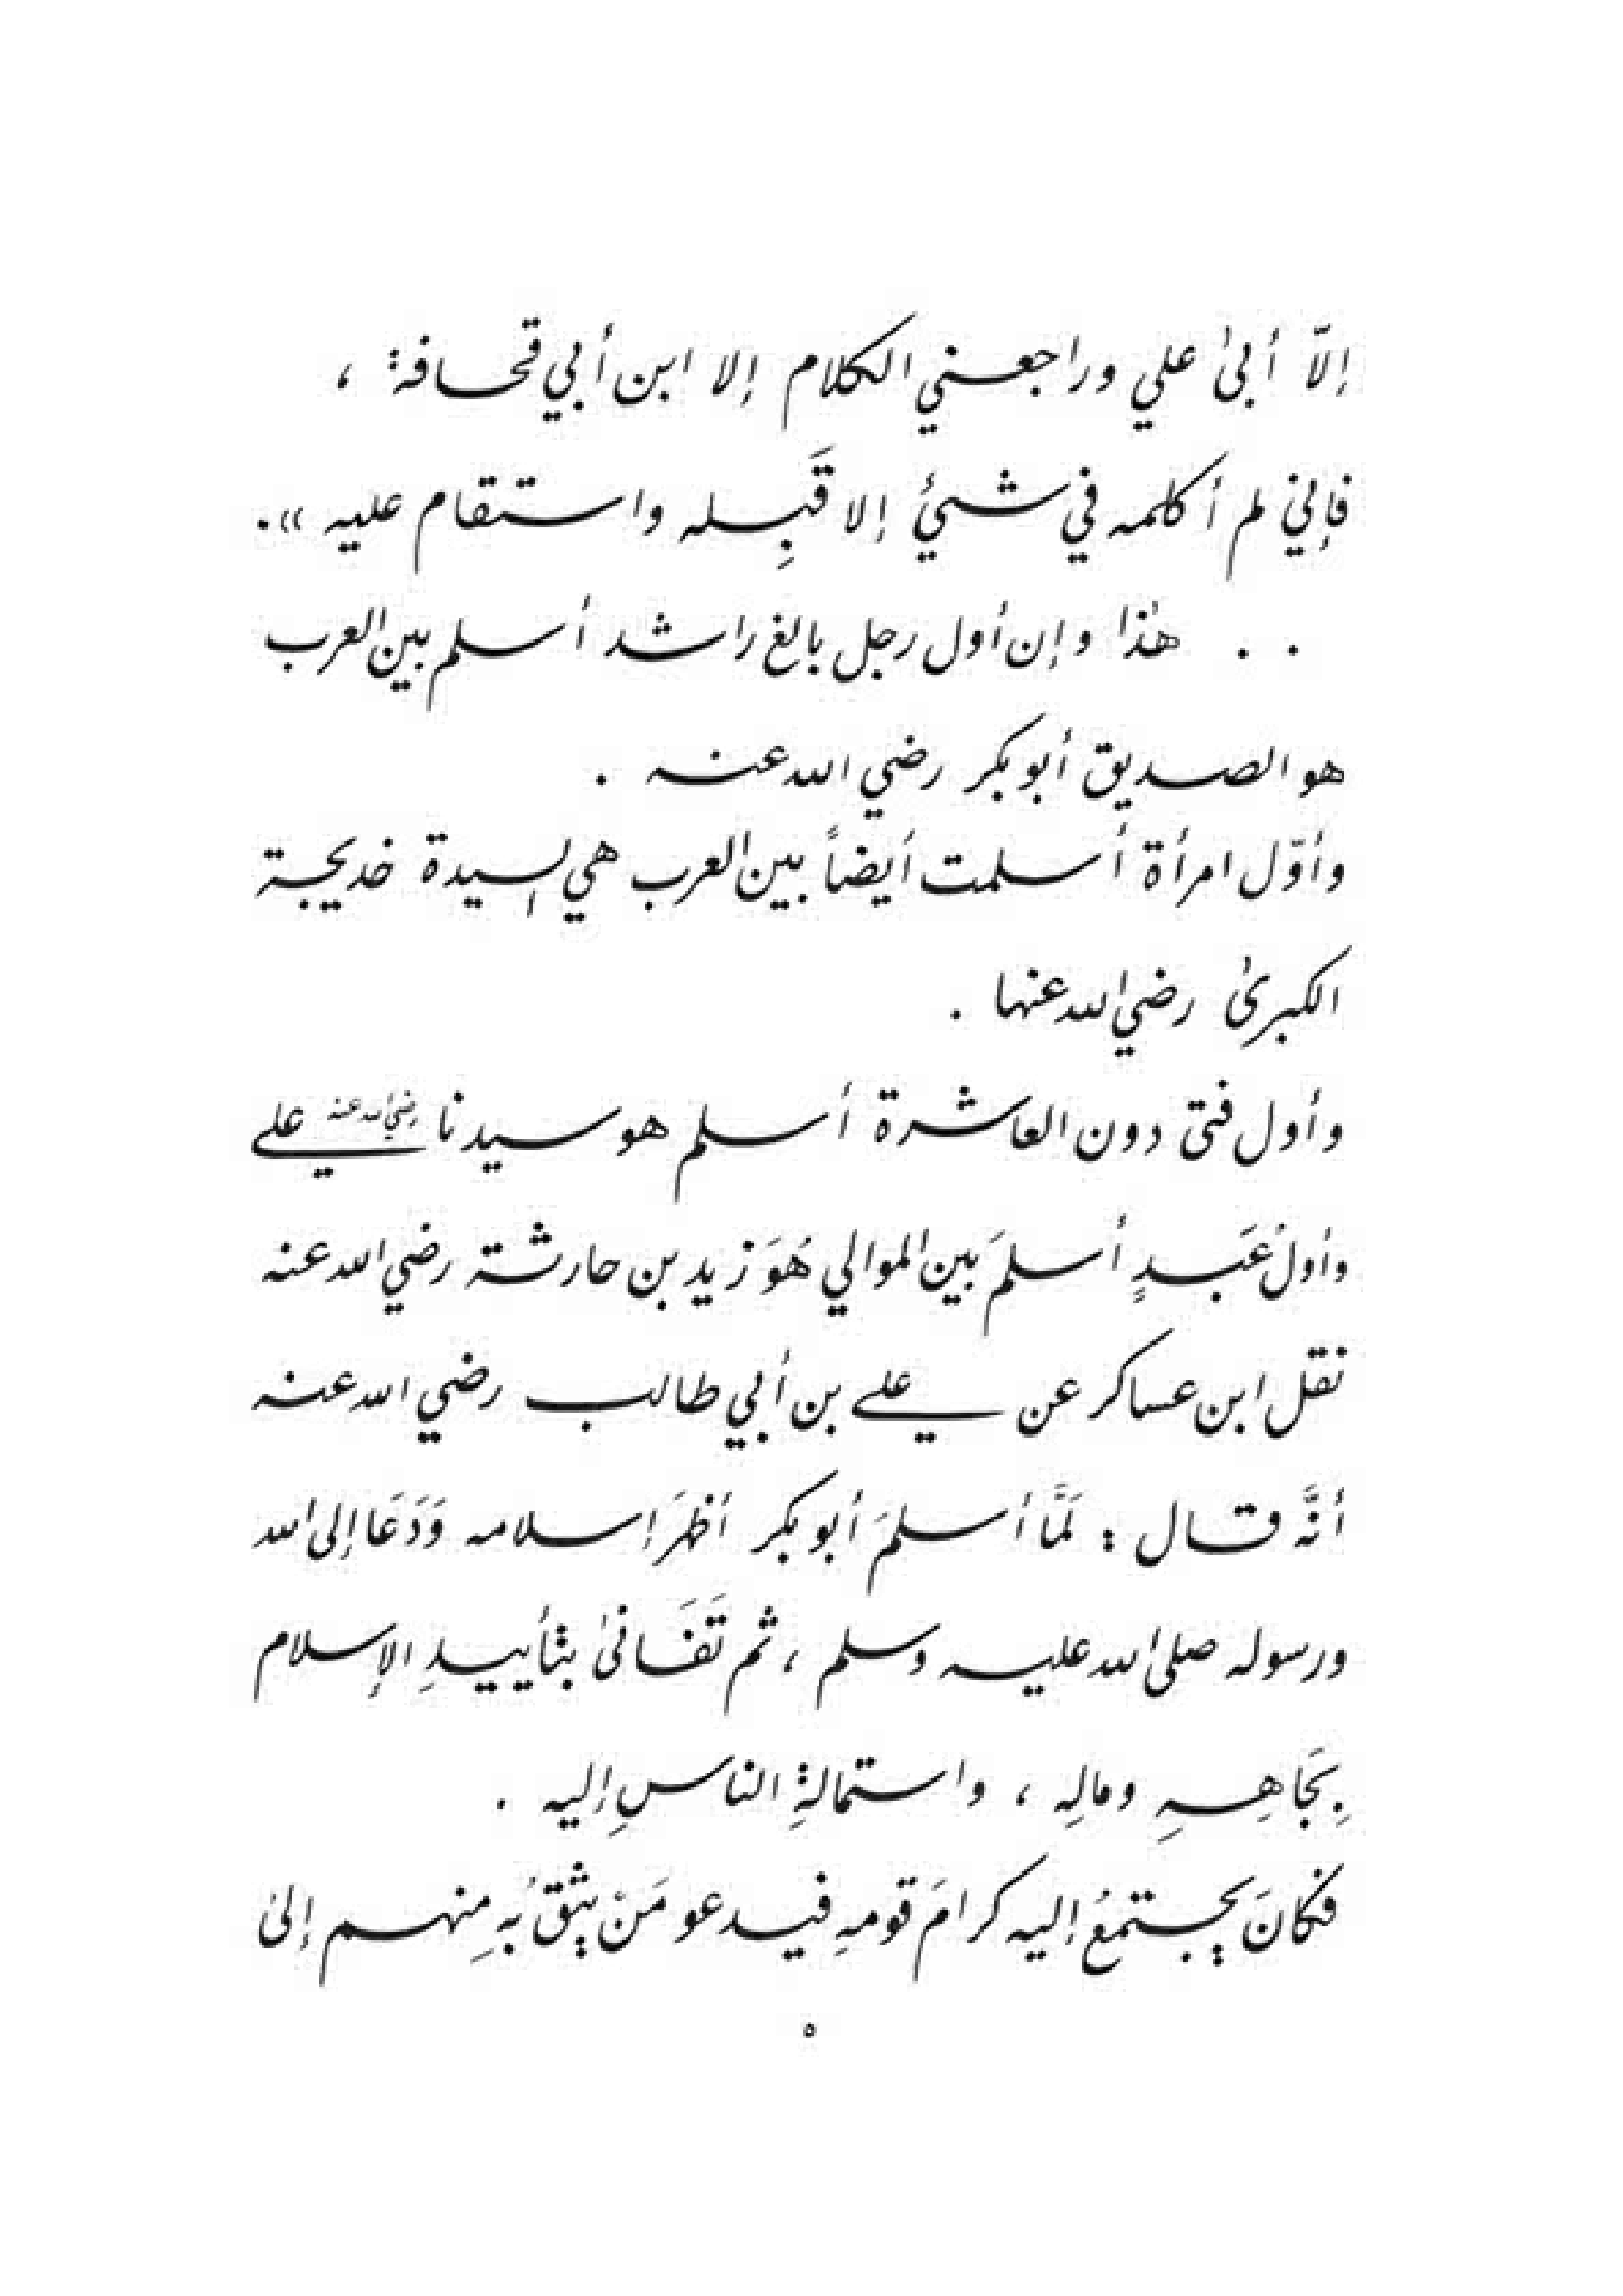 إلّا أبىٰ علي وراجعني الكلام إلا ابن أبي قحافة ،
فإني لم أكلمه في شيئٍ إلا قَبِله واستقام عليه » .
. . هٰذا وإن أول رجل بالغ راشد أسلم بين العرب
هو الصديق أبو بكر رضي الله عنه .
وأوّل امرأة أسلمت أيضاً بين العرب هي السيدة خديجة
الكبرىٰ رضي الله عنها .
وأول فتىً دون العاشرة أسلم هو سيدنا علي رضي الله عنه
وأولُ عَبدٍ أسلمَ بين الموالي هُوَ زيد بن حارثة رضي الله عنه
نقل ابن عساكر عن علي بن أبي طالب رضي الله عنه
أنَّه قال : لَمَّا أسلمَ أبو بكر أظهَرَ إسلامه وَدَعَا إلى الله
ورسوله صلى الله عليه وسلم ، ثم تَفَانىٰ بتأييدِ الإسلام
بِجَاهِهِ ومالِه ، واستمالةِ الناسِ إليه .
فكانَ يجتمعُ إليه كرامَ قومهِ فيدعو مَنْ يثِقُ بُهِ مِنهم إلىٰ
٥